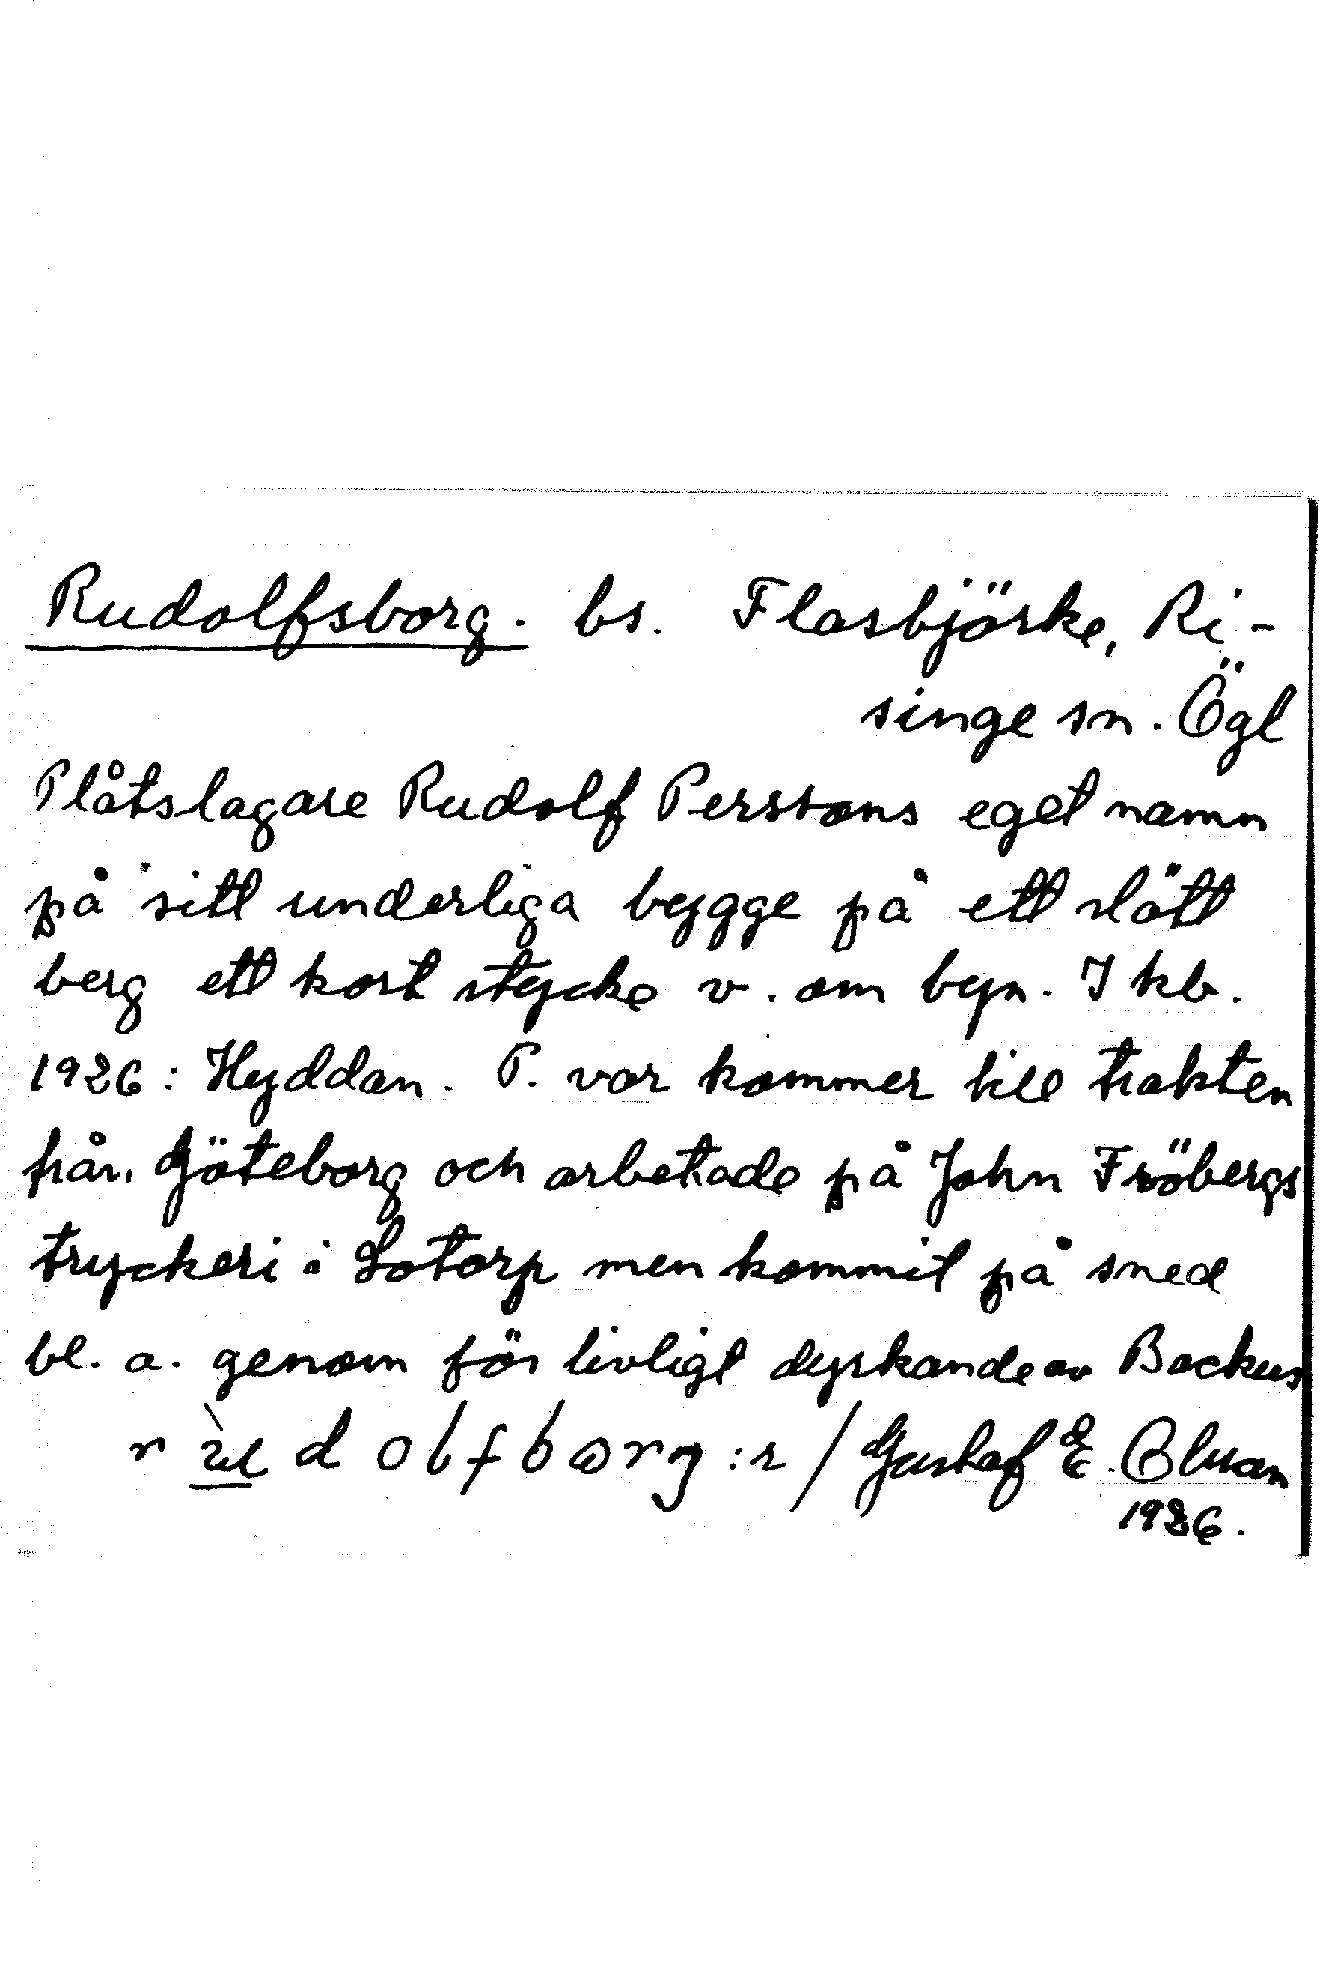 Rudolfsborg. bs. Flasbjörke, Ri-
singe sn. Ögl
Plåtslagare Rudolf Perssons eget namn
på sitt underliga bygge på ett slätt
berg ett kort stycke v. om byn. I kb.
1926: Hyddan. P. var kommer till trakten
från Göteborg och arbetade på John Fröbergs
tryckeri i Lotorp men kommit på sned
bl. a. genom för livligt dyrkande av Backus
1926.